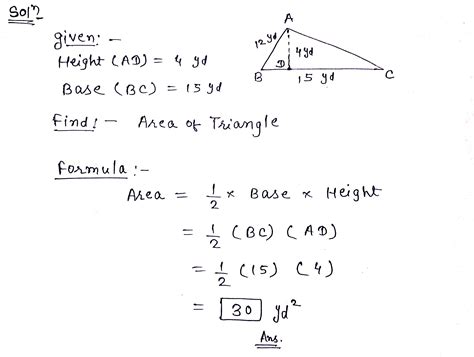 Solⁿ
given: -
Height (AD) = 4 yd
Base (BC) = 15 yd
A
12 yd
4yd
B
D
C
15 yd
Find: - Area of Triangle
Formula: -
Area = 1/2 × Base × Height
= 1/2 (BC) (AD)
= 1/2 (15) (4)
= 30 yd²
Ans.